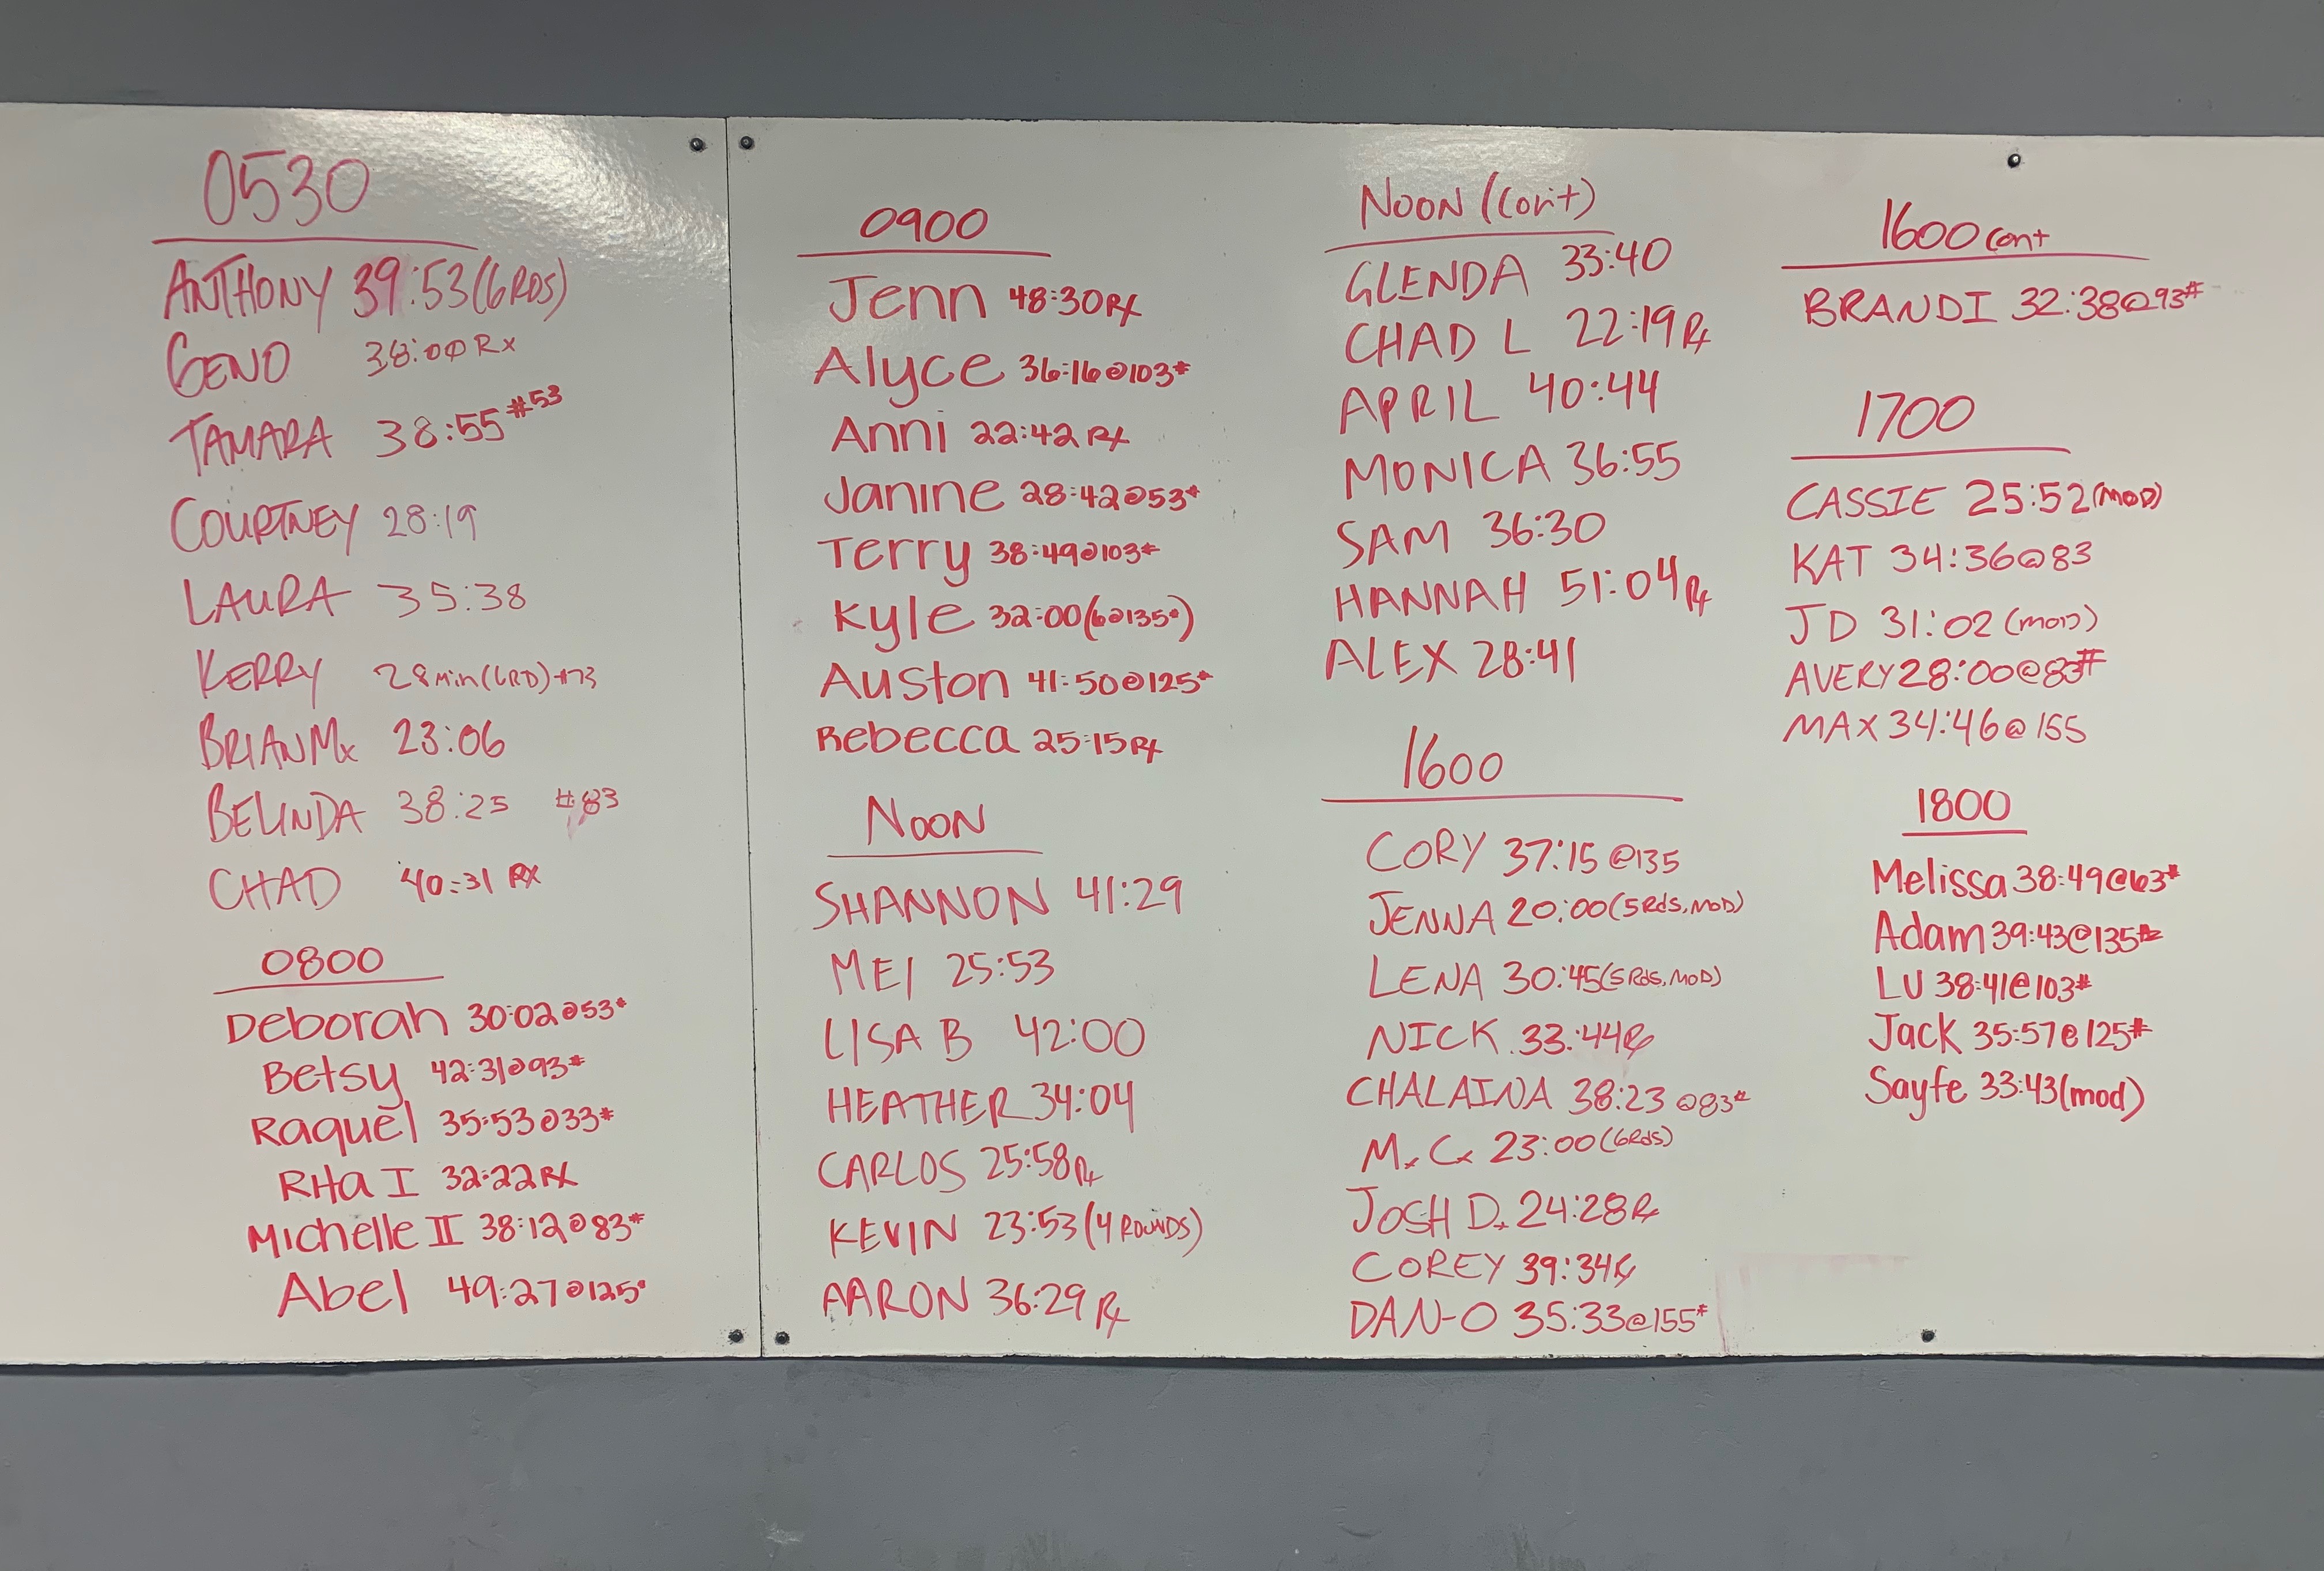 0530
ANTHONY 39:53 (6 RDS)
GENO 38:00 Rx
TAMARA 38:55 #53
COURTNEY 28:19
LAURA 35:38
KERRY 28 Min (6RD) #73
BRIAN Mx 23:06
BELINDA 38:25 #83
CHAD 40:31 RX
0800
Deborah 30:02@53#
Betsy 42:31@93#
Raquel 35:53@33#
Rita I 32:22 Rx
Michelle II 38:12@83#
Abel 49:27@125#
0900
Jenn 48:30 Rx
Alyce 36:16@103#
Anni 22:42 Rx
Janine 28:42@53#
Terry 38:49@103#
Kyle 32:00 (6@135#)
Auston 41:50@125#
Rebecca 25:15 Rx
NOON
SHANNON 41:29
MEI 25:53
LISA B 42:00
HEATHER 34:04
CARLOS 25:58 Rx
KEVIN 23:53 (4 ROUNDS)
AARON 36:29 Rx
NOON (Con't)
GLENDA 33:40
CHAD L 22:19 Rx
APRIL 40:44
MONICA 36:55
SAM 36:30
HANNAH 51:04 Rx
ALEX 28:41
1600
CORY 37:15 @135
JENNA 20:00 (5 Rds, MOD)
LENA 30:45 (5 Rds, MOD)
NICK 33:44 Rx
CHALAINA 38:23 @83#
Mx Cx 23:00 (6 Rds)
JOSH D. 24:28 Rx
COREY 39:34 Rx
DAN-O 35:33@155#
1600 cont
BRANDI 32:38@93#
1700
CASSIE 25:52 (MOD)
KAT 34:36@83
JD 31:02 (MOD)
AVERY 28:00@83#
MAX 34:46@155
1800
Melissa 38:49@63#
Adam 39:43@135#
LU 38:41@103#
Jack 35:57@125#
Sayfe 33:43 (mod)